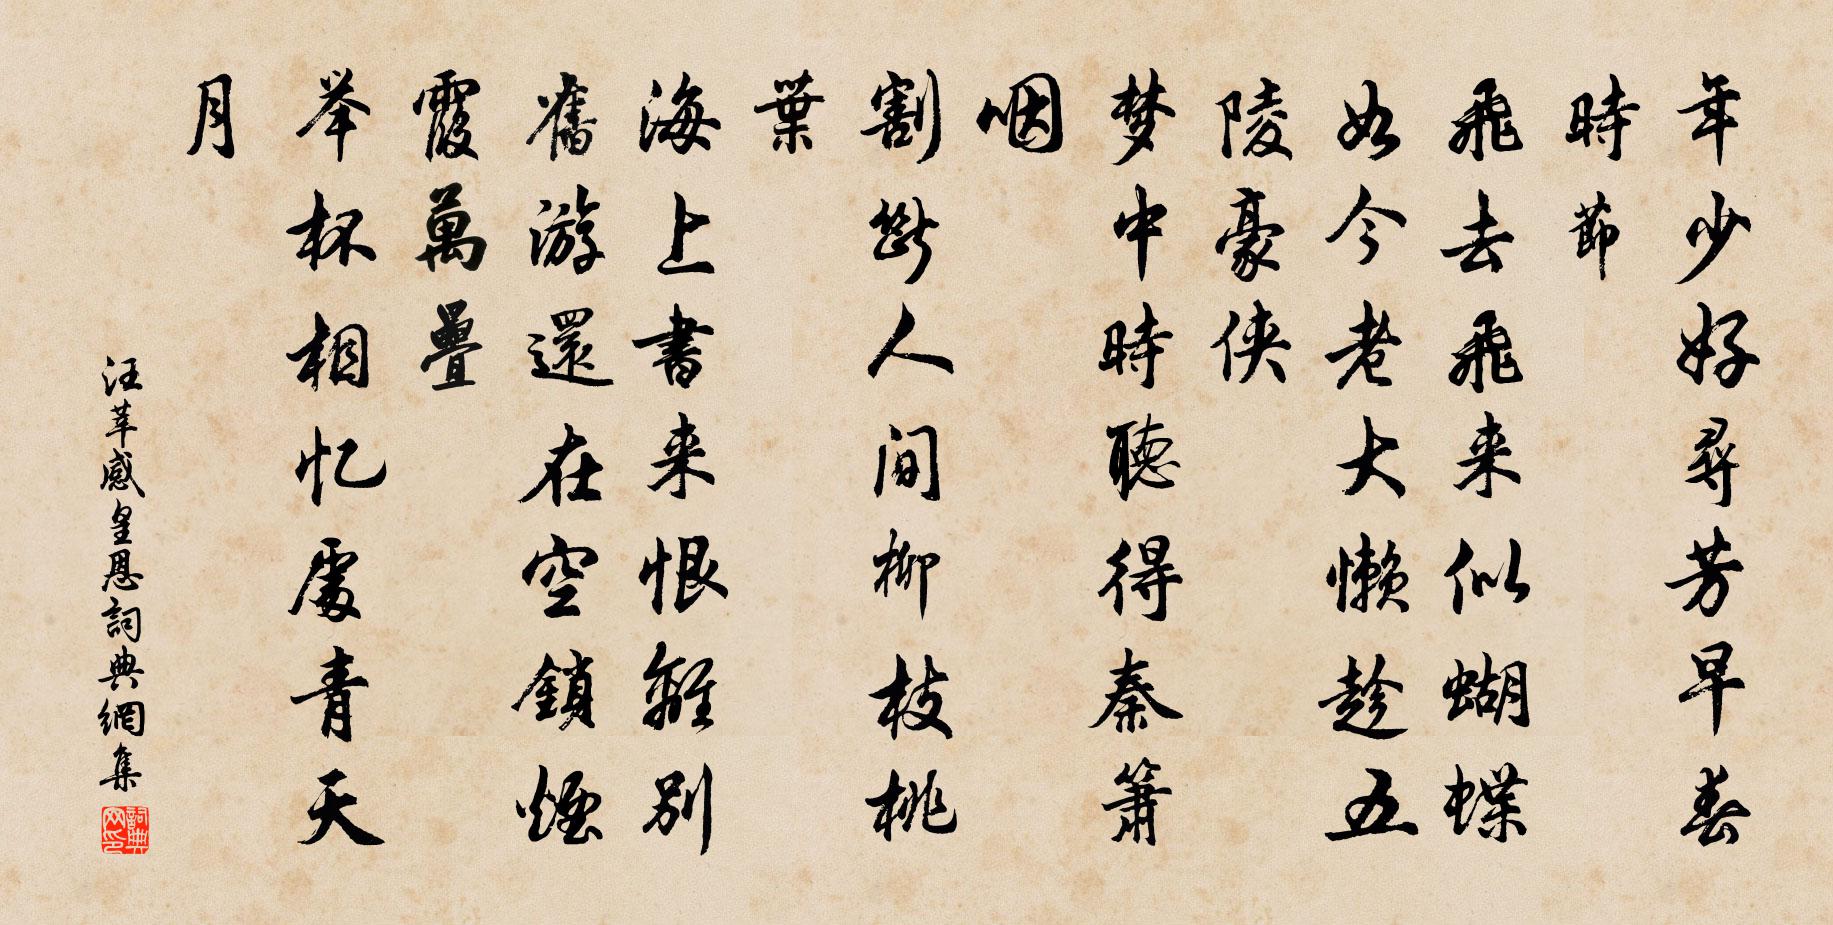 年少好尋芳早春
時節
飛去飛来似蝴蝶
如今老大懒趁五
陵豪侠
梦中時聽得秦箫
咽
割断人间柳枝桃
葉
海上書来恨離别
舊游還在空鎖煙
霞萬疊
举杯相忆處青天
月
汪莘感皇恩詞典網集
詞典网印